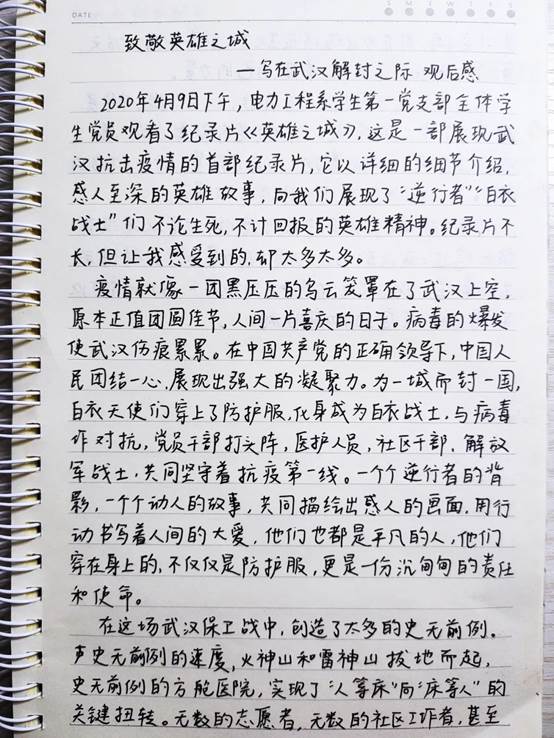 DATE
S M T W T F S
致敬英雄之城
—写在武汉解封之际 观后感
2020年4月9日下午，电力工程系学生第一党支部全体学
生党员观看了纪录片《英雄之城》，这是一部展现武
汉抗击疫情的首部纪录片，它以详细的细节介绍，
感人至深的英雄故事，向我们展现了“逆行者”“白衣
战士”们不论生死，不计回报的英雄精神。纪录片不
长，但让我感受到的，却太多太多。
疫情就像一团黑压压的乌云笼罩在了武汉上空，
原本正值团圆佳节，人间一片喜庆的日子。病毒的爆发
使武汉伤痕累累。在中国共产党的正确领导下，中国人
民团结一心，展现出强大的凝聚力。为一城而封一国，
白衣天使们穿上了防护服，化身成为白衣战士，与病毒
作对抗，党员干部打头阵，医护人员，社区干部，解放
军战士，共同坚守着抗疫第一线。一个个逆行者的背
影，一个个动人的故事，共同描绘出感人的画面，用行
动书写着人间的大爱，他们也都是平凡的人，他们
穿在身上的，不仅仅是防护服，更是一份沉甸甸的责任
和使命。
在这场武汉保卫战中，创造了太多的史无前例。
声史无前例的速度，火神山和雷神山拔地而起，
史无前例的方舱医院，实现了“人等床”向“床等人”的
关键扭转。无数的志愿者，无数的社区工作者，甚至